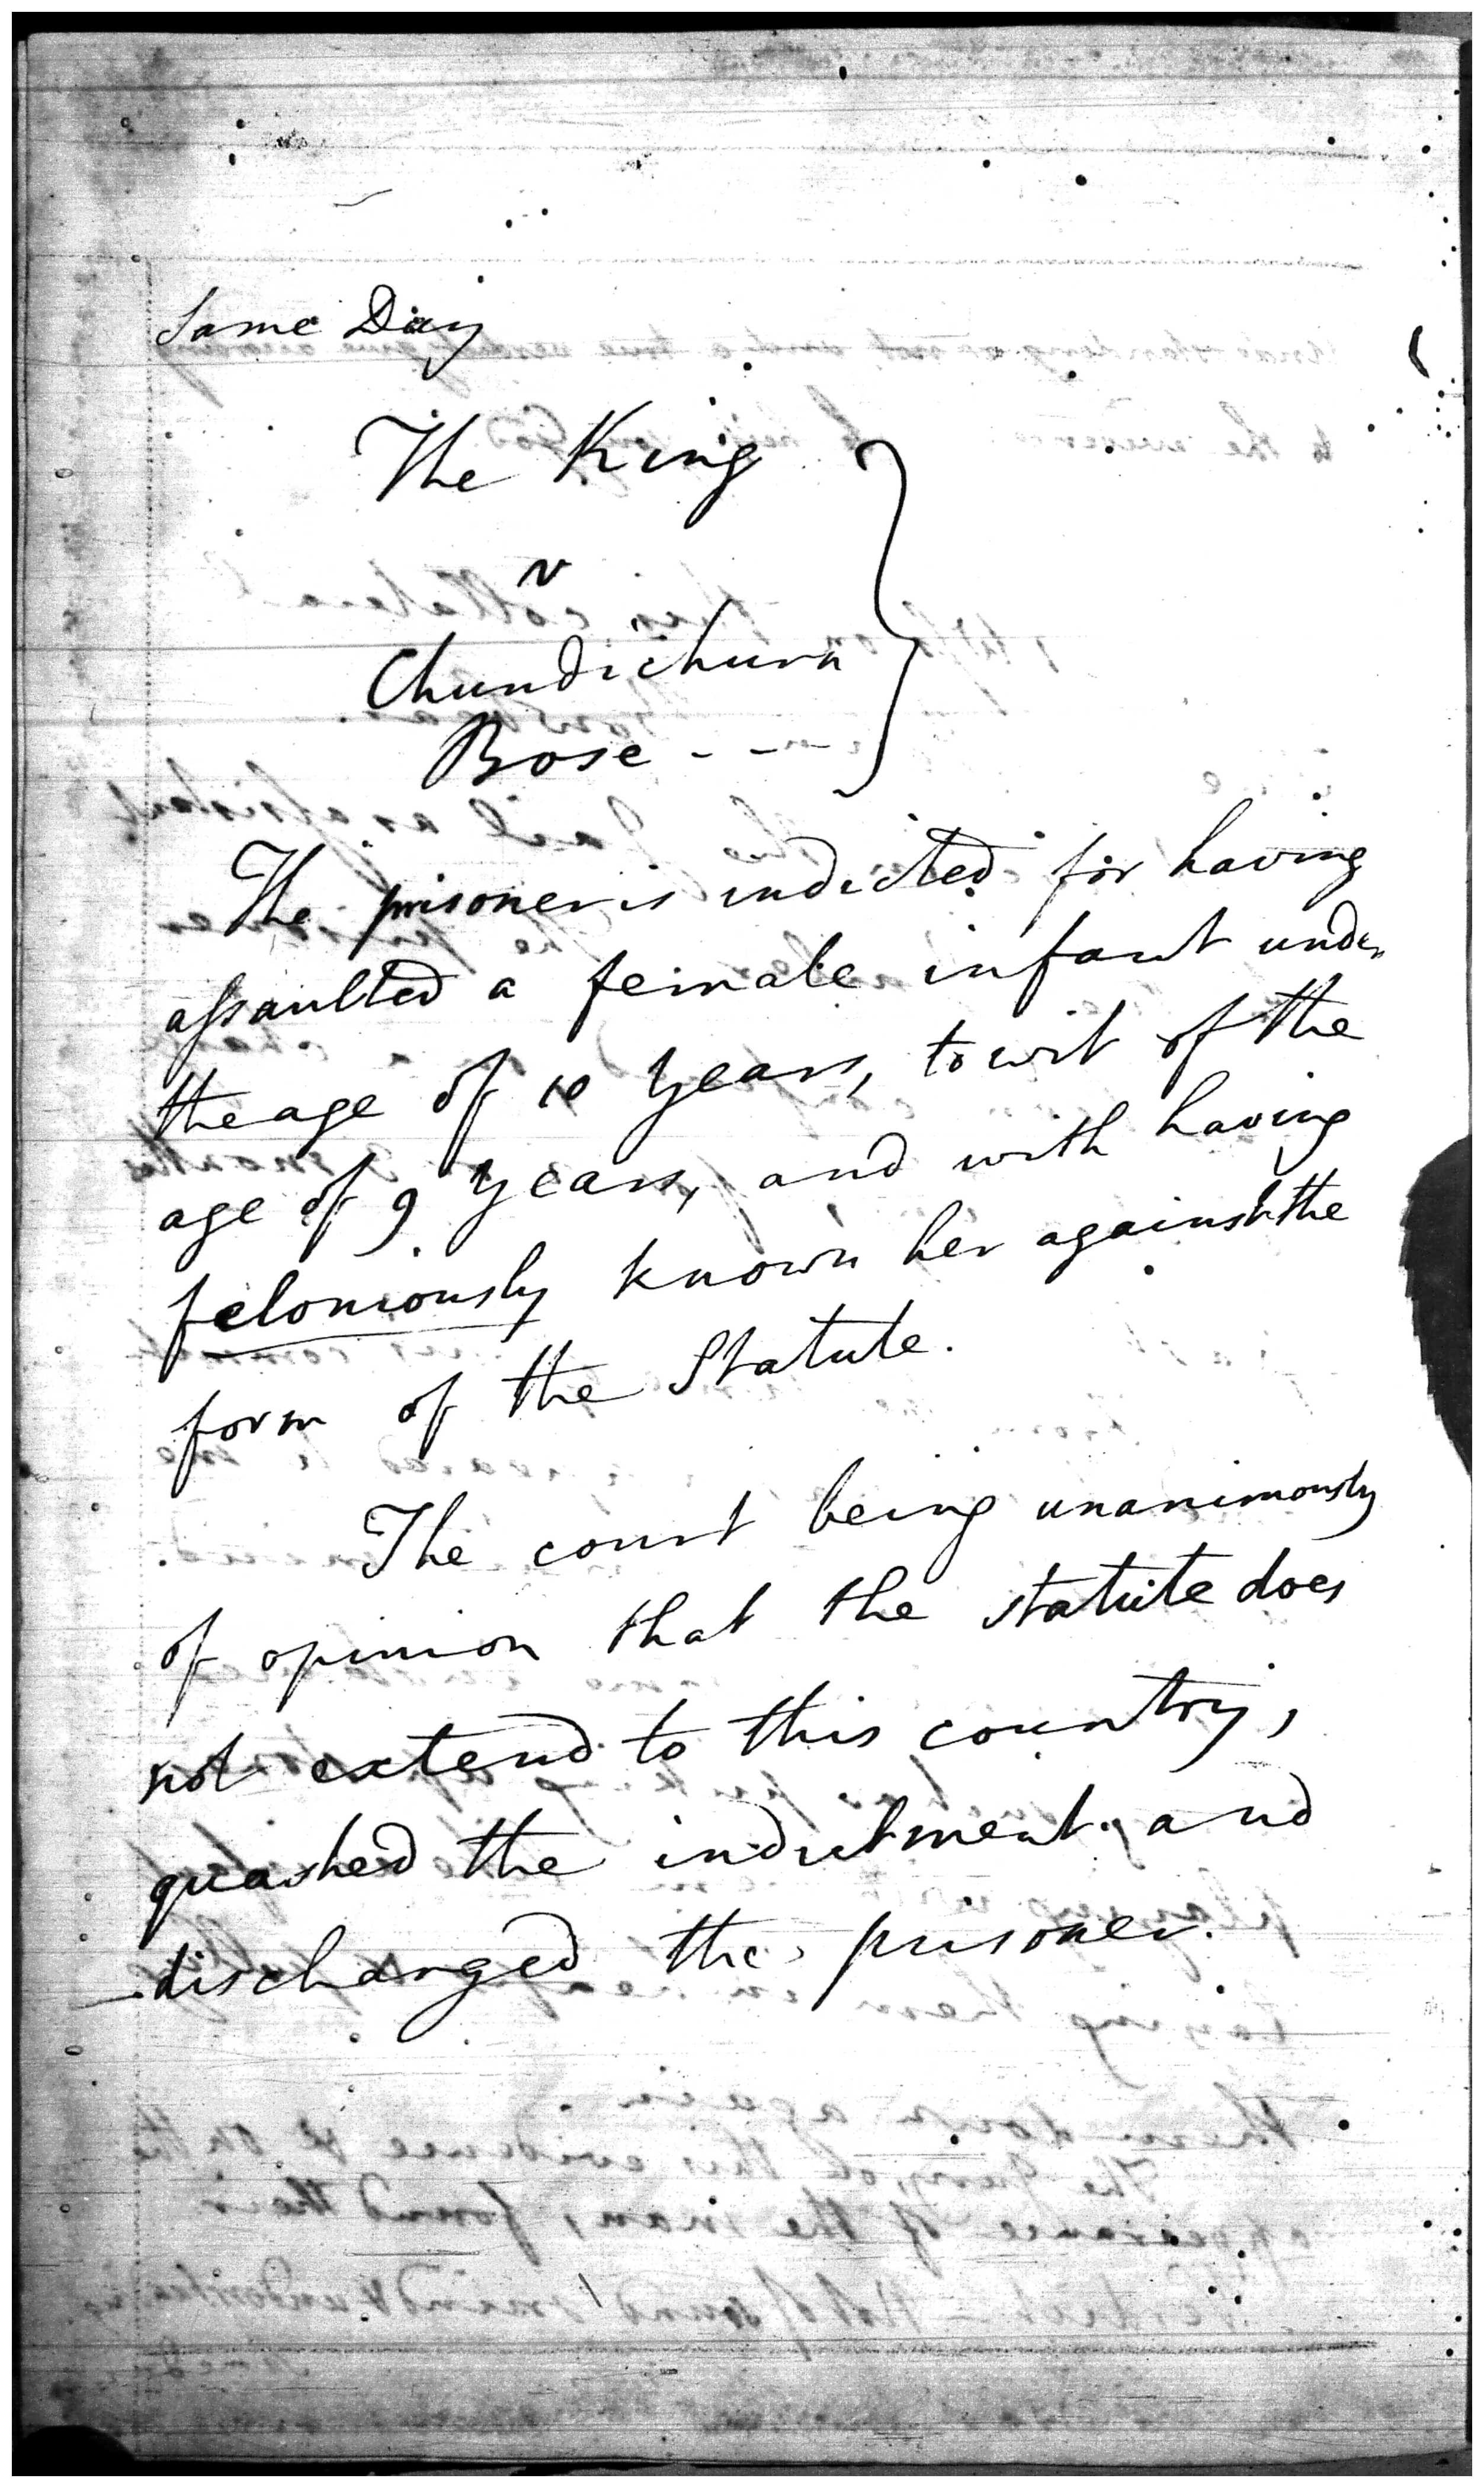 Same Day
The King
v
Chundichurn
Bose - - -
The prisoner is indicted for having
assaulted a female infant under
the age of 10 years, to wit of the
age of 9 years, and with having
feloniously known her against the
form of the Statute.
The court being unanimously
of opinion that the statute does
not extend to this country,
quashed the indictment and
discharged the prisoner.